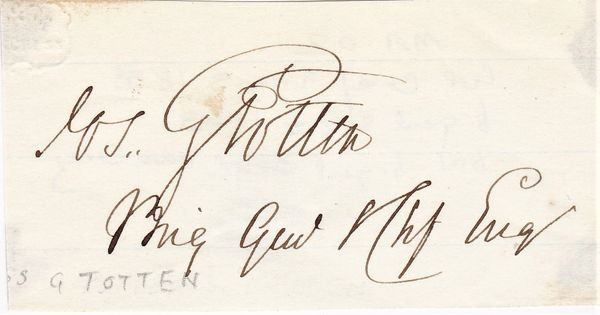 Jos. G Totten
Brig Genl & Chf Eng
os G TOTTEN